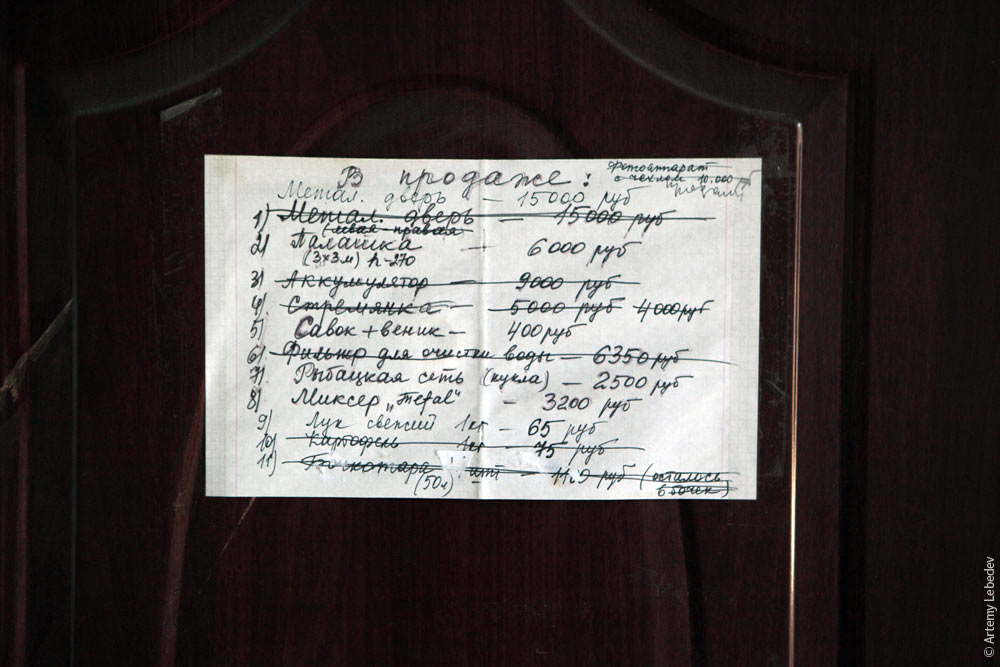 В продаже:
Фотоаппарат
с чехлом 10.000 руб
Метал. дверь – 15000 руб
1) Метал. дверь – 15000 руб
(левая-правая
2) Палашка – 6000 руб
(3×3м) h-270
3) Аккумулятор – 9000 руб
4) Стремянка – 5000 руб 4000руб
5) Савок + веник – 400 руб
6) Фильтр для очистки воды – 6350 руб
7) Рыбацкая сеть (кукла) – 2500 руб
8) Миксер „Tefal" – 3200 руб
9) Лук свежий 1кг – 65 руб
10) Картофель 1кг 75 руб
11) шт – руб (осталось
(50л) 6 бочек)
© Artemy Lebedev